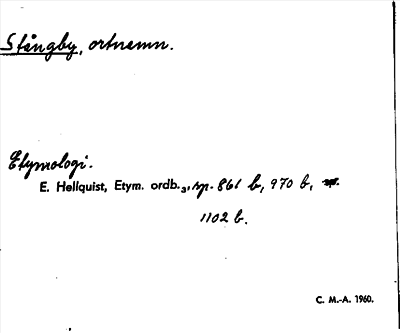 Stångby, ortnamn.
Etymologi.
E. Hellquist, Etym. ordb.₃, sp. 861 b, 970 b,
1102 b.
C. M.-A. 1960.